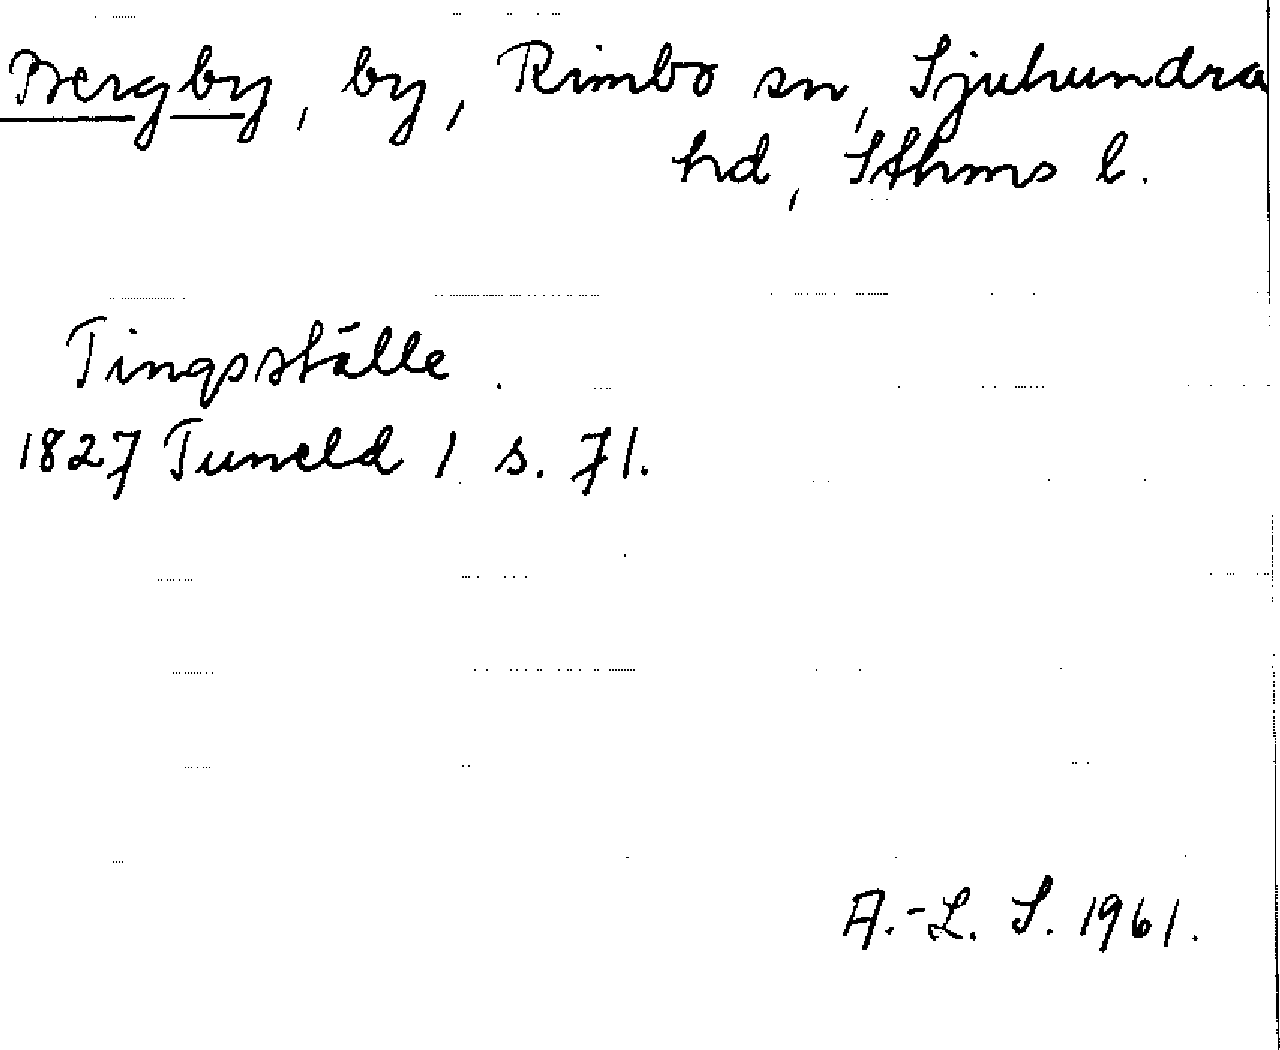 Bergby, by, Rimbo sn, Sjuhundra
hd, Sthms l.
Tingsställe.
1827 Tuneld 1 s. 71.
A.-L. S. 1961.